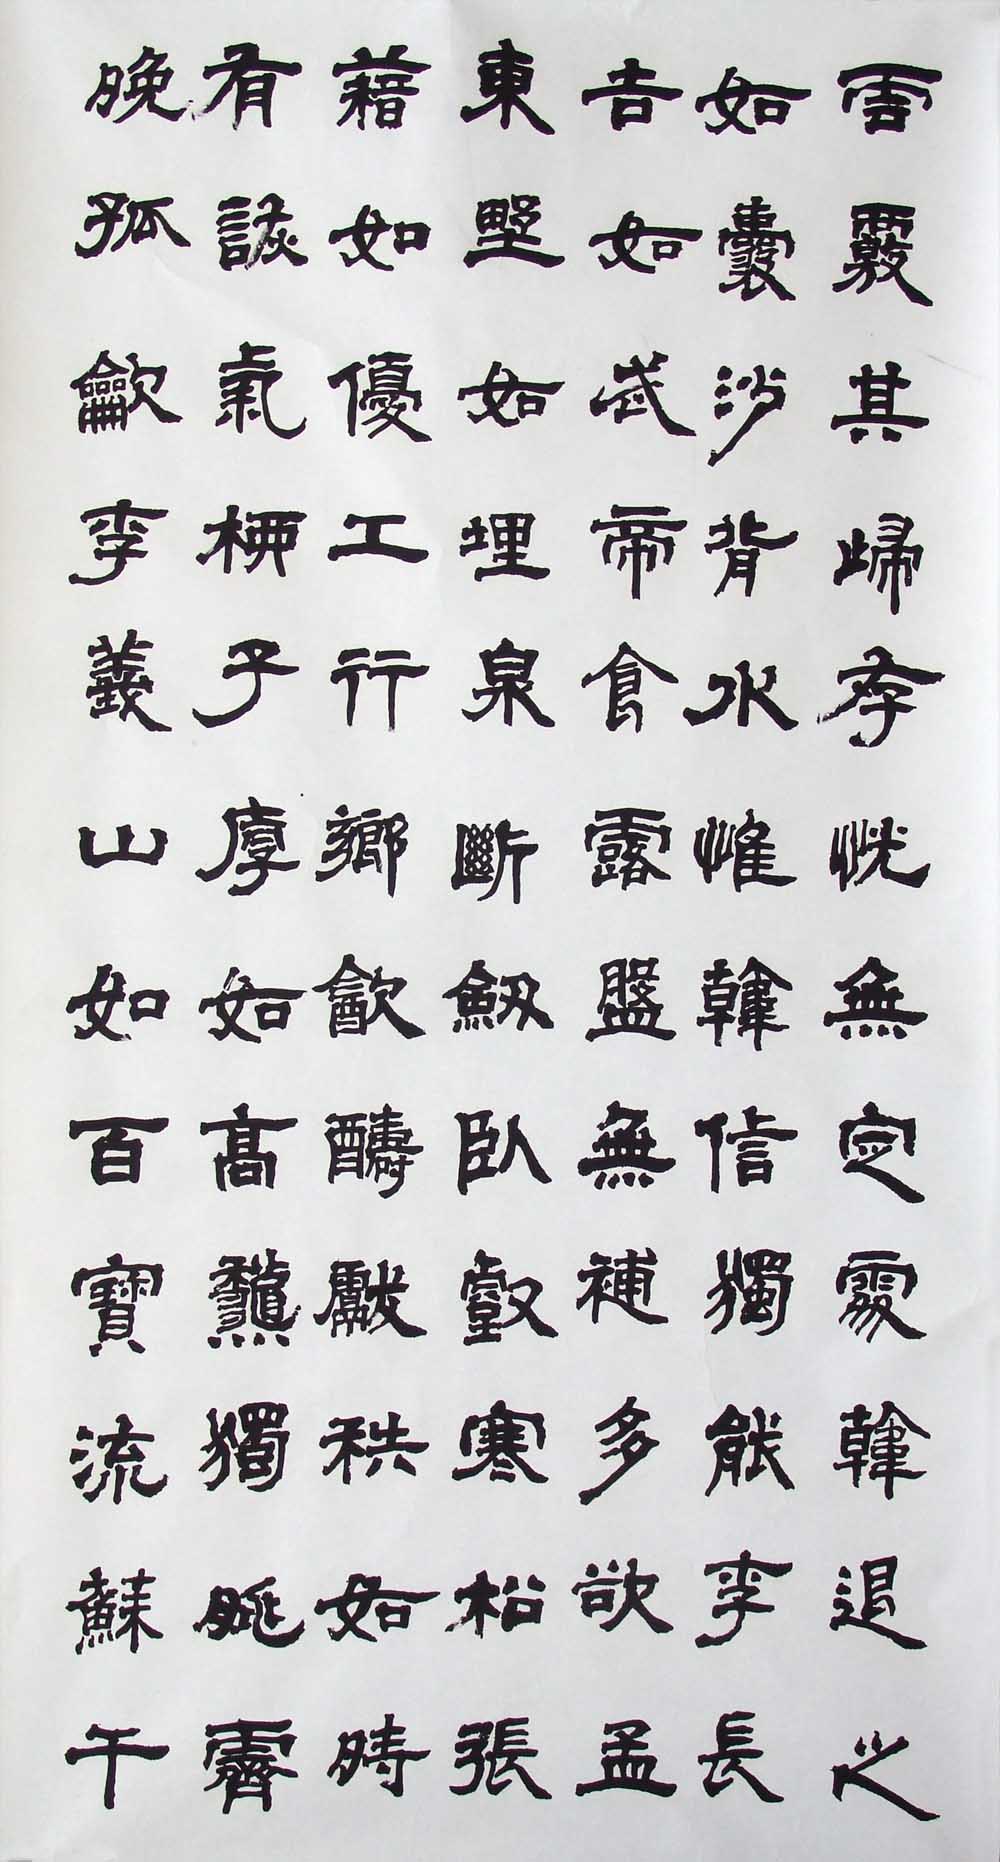 雲覈其歸存恍無定處韓退之
如囊沙背水惟韓信獨能李長
吉如武帝食露盤無補多欲孟
東埜如埋泉斷劒臥壑寒松張
藉如優工行鄉飲醻獻秩如時
有詼氣柳子厚如高龝獨眺霽
晚孤龡李義山如百寶流蘇千